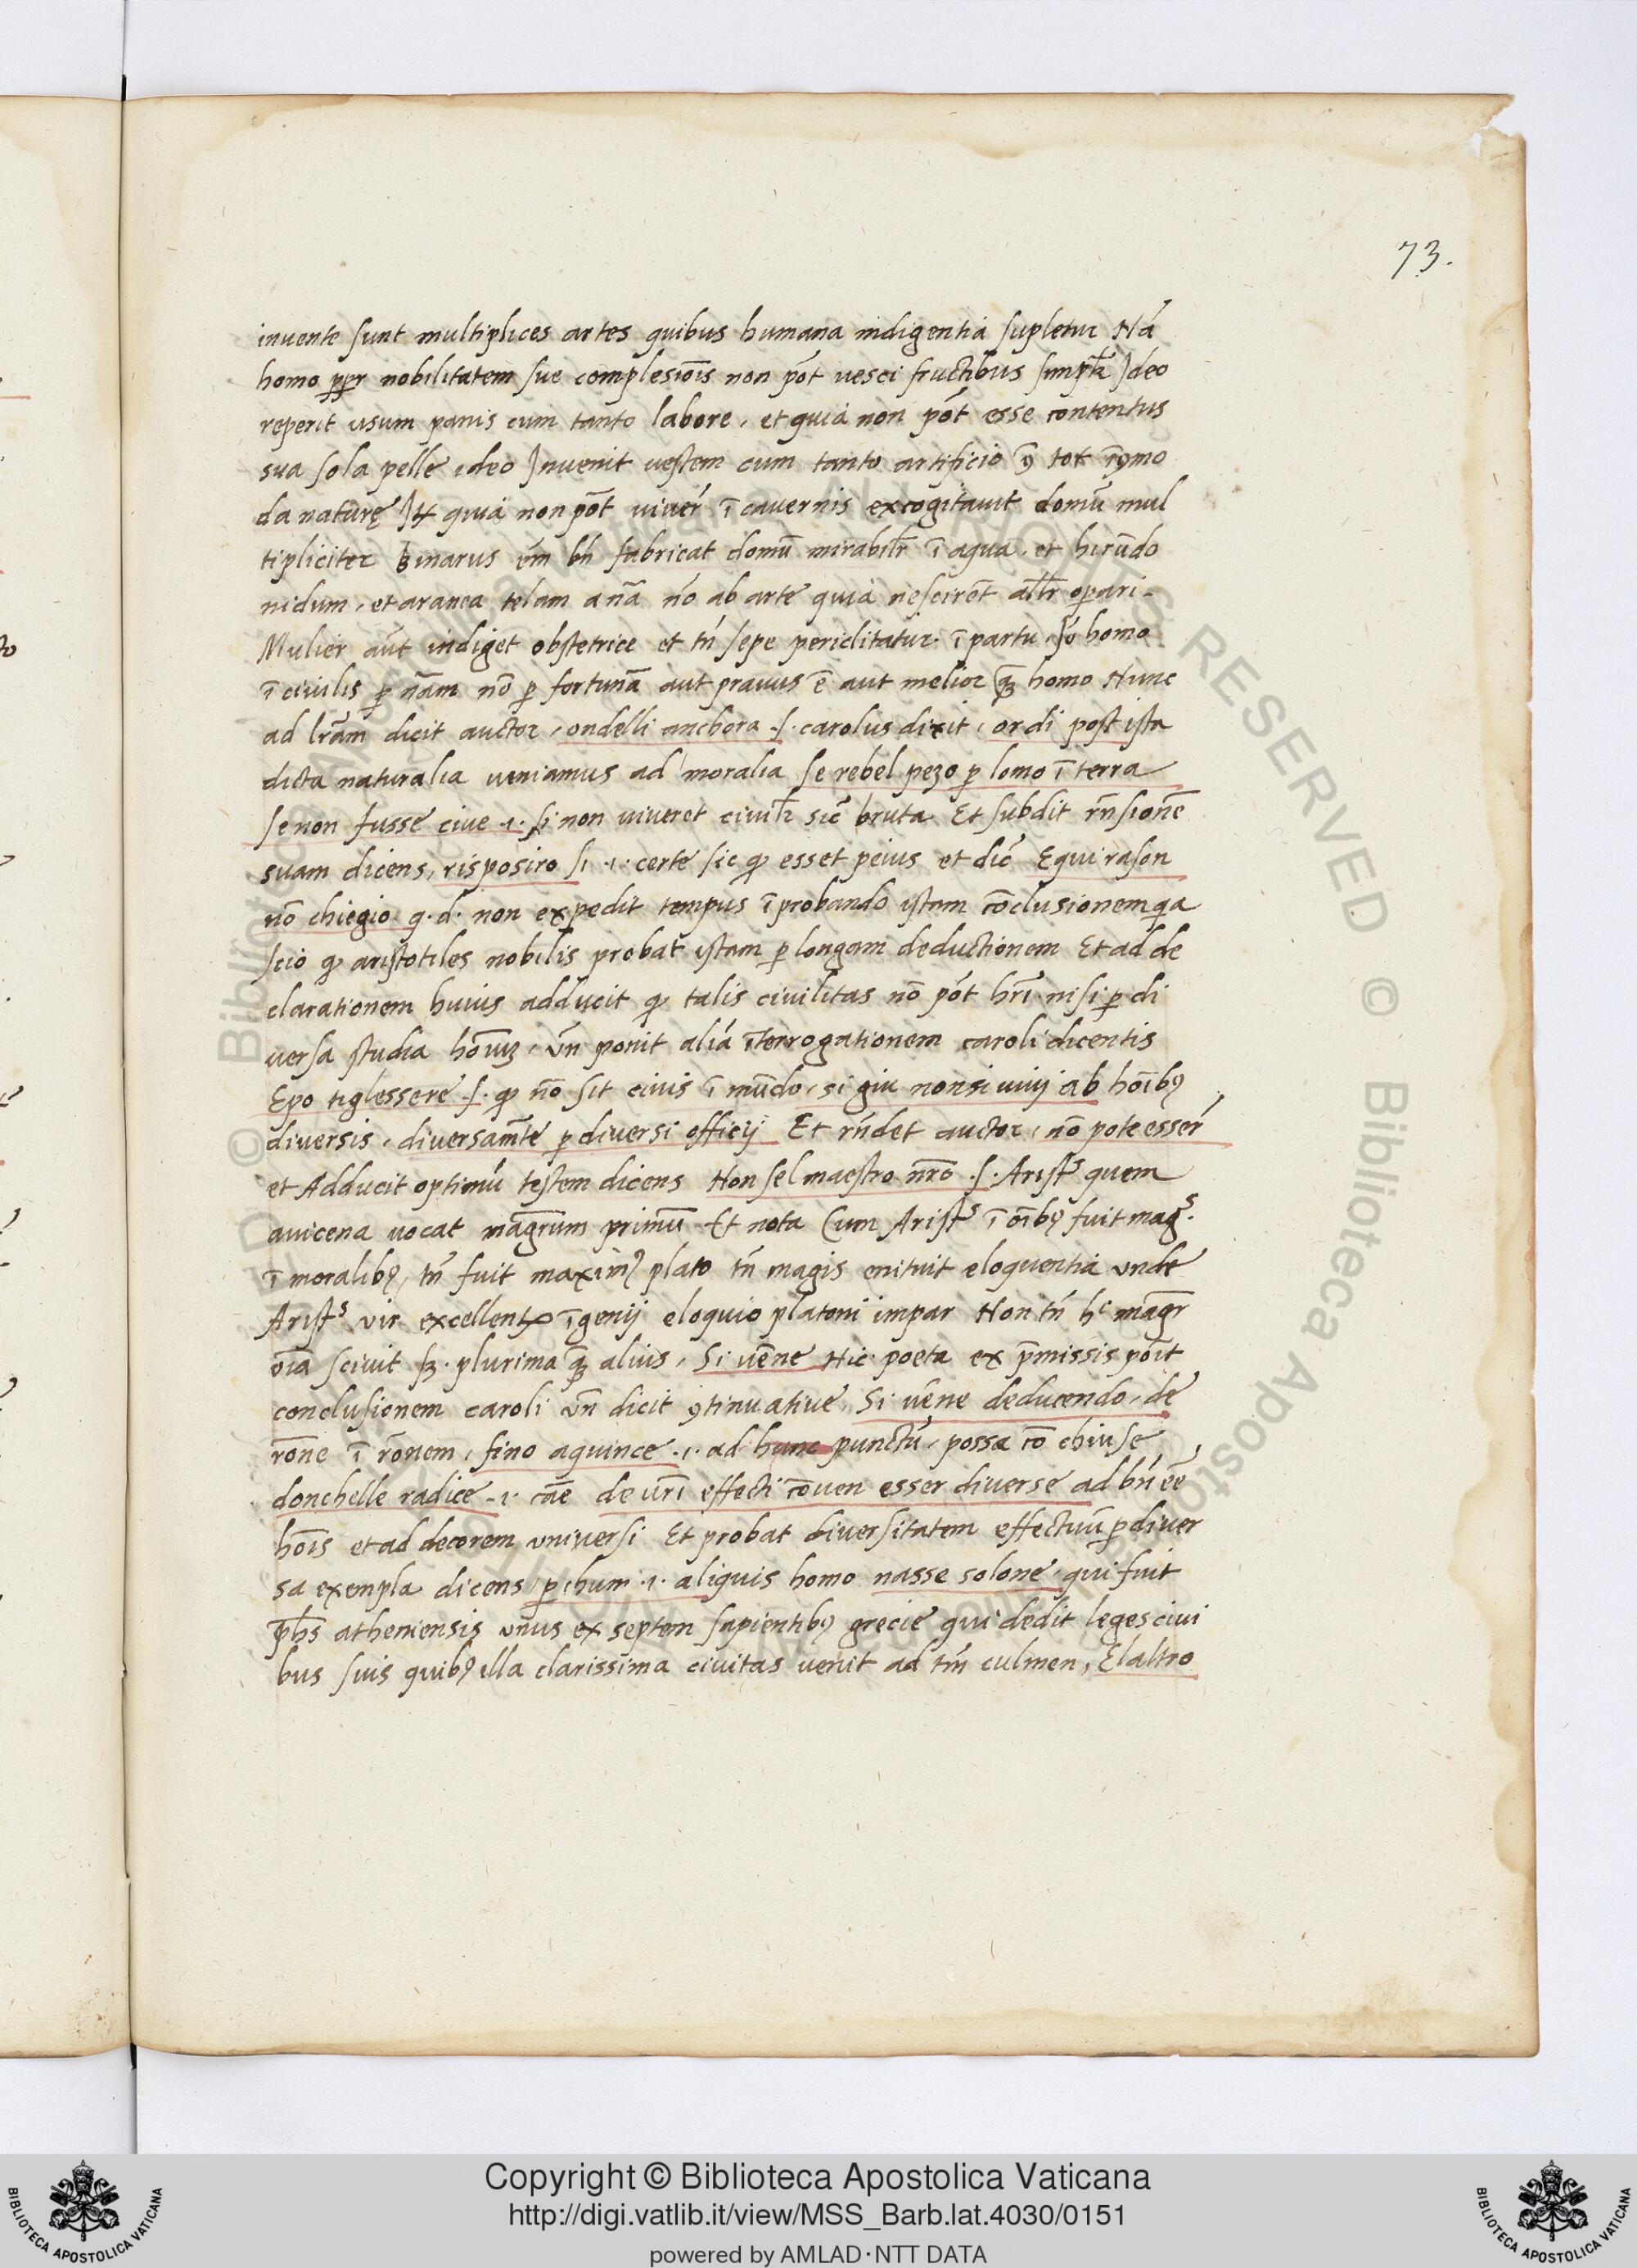 73.
inuente sunt multiplices artes quibus humana indigentia supletur Nā
homo ꝓpr nobilitatem sue complesiōis non pōt uesci fructibus simplr̄ Ideo
reperit usum panis cum tanto labore, et quia non pōt esse contentus
sua sola pelle ideo Inuenit uestem cum tanto artificio tot
da naturę It quia non pōt uiuer ī cauernis excogitauit domū mul
tipliciter Binarus em̄ bn̄ fabricat domū mirabilr̄ ī aqua, et hirūdo
nidum, et aranea telam anā nō ab arte quia nescirēt alr̄ oꝑari-
Mulier aūt indiget obstetrice et tn̄ sepe periclitatur ī partu, homo
ī ciuilis ꝑ nām nō ꝑ fortunā aut prauus ē aut melior homo Nunc
ad lr̄am dicit auctor, ondelli anchora .s. carolus dixit, or di post ista
dicta naturalia ueniamus ad moralia se rebel pezo ꝑ lomo ī terra
se non fusse ciue .i. si non uiueret ciuilr̄ sic̄ bruta Et subdit rn̄sionē
suam dicens, risposiro si .i. certe sic ꝙ esset peius et dic̄ Equi rason
nō chiegio q.d. non expedit tempus ī probando istam cōclusionem qa
scio ꝙ aristotiles nobilis probat istam ꝑ longam deductionem Et ad de
clarationem huius adducit ꝙ talis ciuilitas nō pōt hr̄i nisi ꝑ di
uersa studia hōiuȝ, vn̄ ponit aliā īterrogationem caroli dicentis
Epo tiglessere .s. ꝙ nō sit ciuis ī mūdo, si giu non si uiuj ab hōibꝰ
diuersis, diuersamt̄e ꝑ diuersi officij Et rn̄det auctor, nō pote esser
et Adducit optimū testem dicens Non sel maestro nr̄o .s. Aristˢ quem
auicena uocat magr̄um primū Et nota Cum Aristˢ ī oībꝰ fuit magˢ.
ī moralibꝰ, tn̄ fuit maximꝰ plato tn̄ magis enituit eloquentia vnde
Aristˢ vir excellentis īgenij eloquio platoni impar Non tn̄ hᶜ magr̄
oīa sciuit sȝ. plurima alijs, Si uēne Hic poeta ex p̄missis pōit
conclusionem caroli vn̄ dicit ꝯtinuatiue, Si uēne deducendo, de
rōne ī rōnem, fino aquince .i. ad hunc punctū, possa cō chiuse,
donchelle radice .i. cāe de ur̄i effecti cōuen esser diuerse ad bn̄ eē
hōis et ad decorem vniuersi Et probat diuersitatem effectuū ꝑ diuer
sa exempla dicens ꝑchum .i. aliquis homo nasse solone, qui fuit
ph̄s atheniensis vnus ex septem sapientibꝰ grecie qui dedit leges ciui
bus suis quibꝰ illa clarissima ciuitas uenit ad tm̄ culmen, Elaltro
Copyright © Biblioteca Apostolica Vaticana
http://digi.vatlib.it/view/MSS_Barb.lat.4030/0151
powered by AMLAD·NTT DATA
BIBLIOTECA APOSTOLICA VATICANA
BIBLIOTECA APOSTOLICA VATICANA